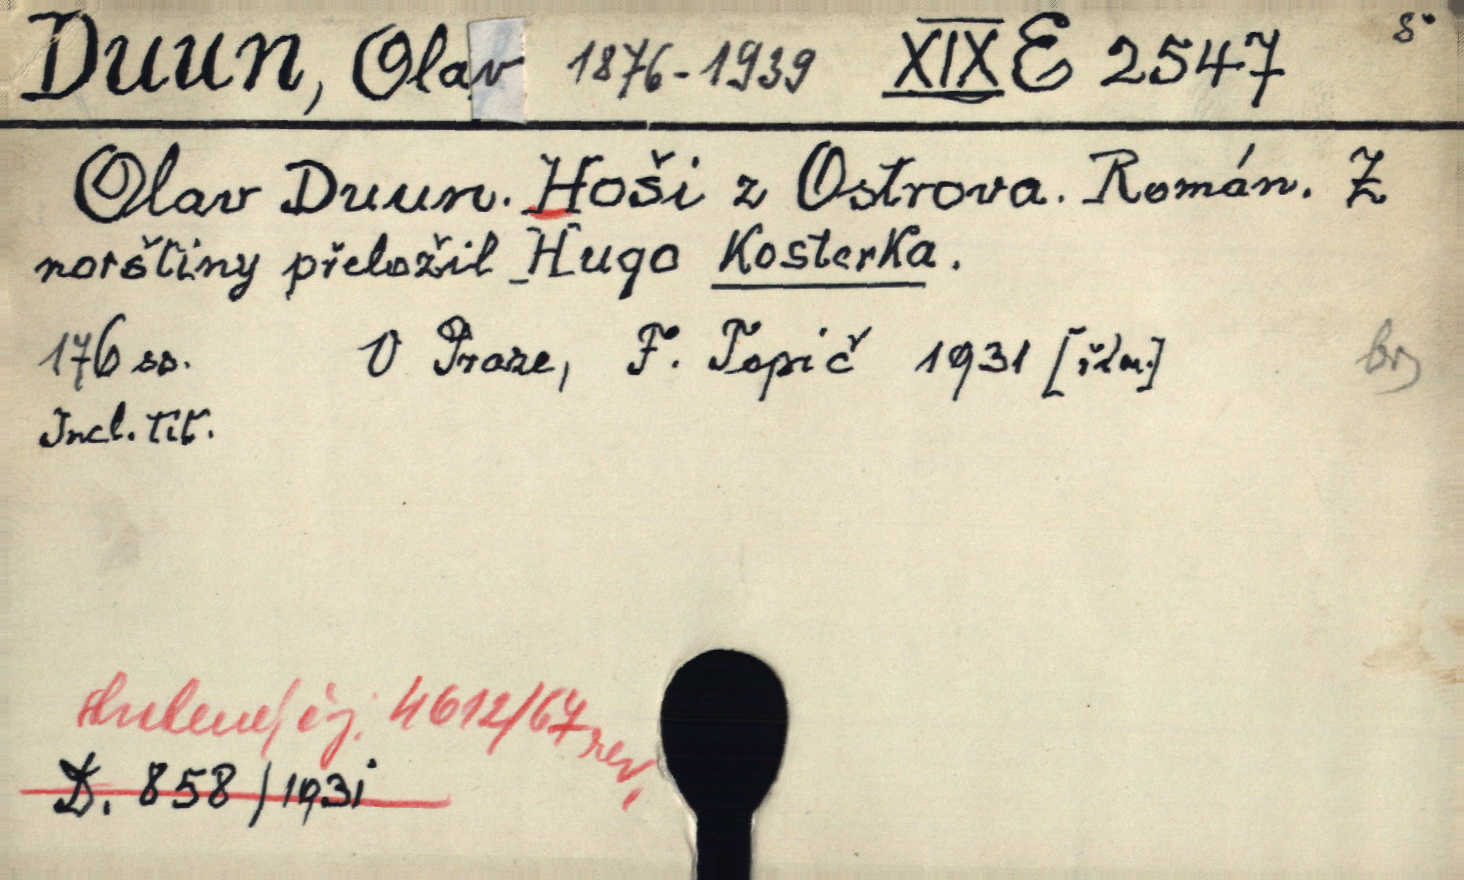 Duun, Olav 1876-1939 XIX E 2547 8°
Olav Duun. Hoši z Ostrova. Román. Z
norštiny přeložil Hugo Kosterka.
176 ss. V Praze, F. Topič 1931 [řím.]
Incl. tit.
čj. 4612/67
D. 858/1931